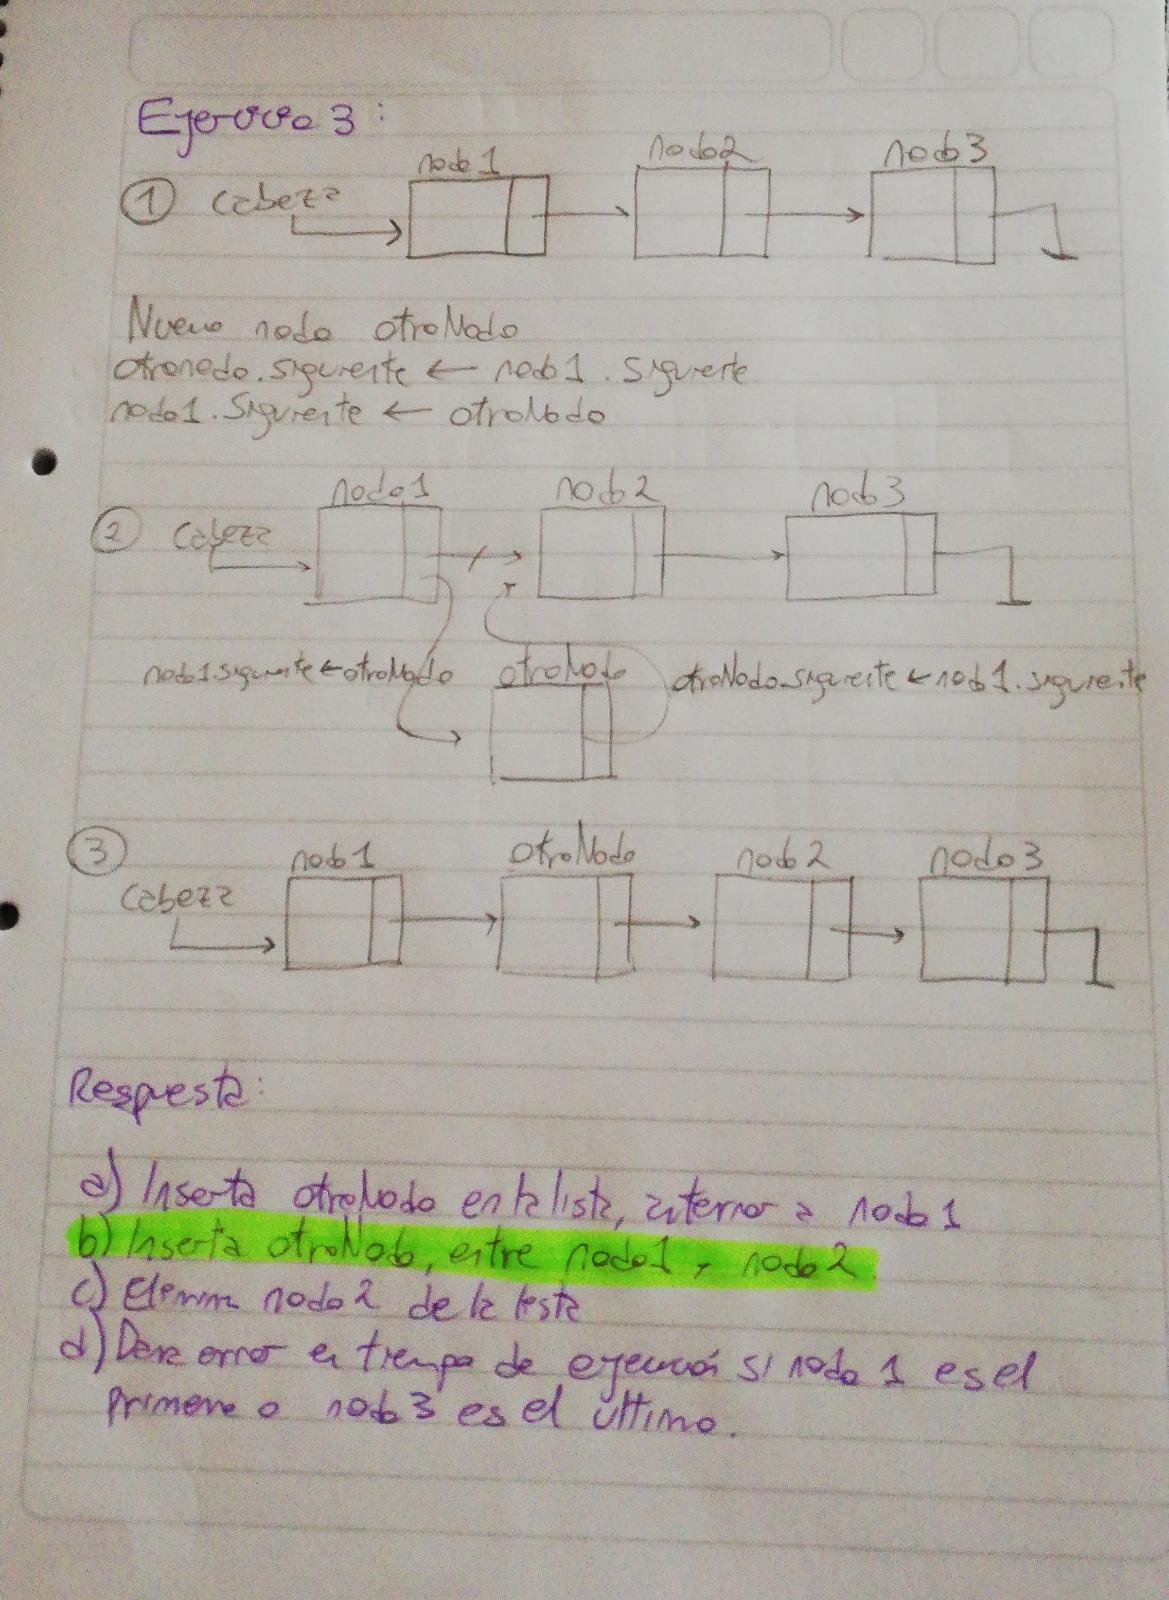 Ejercicio 3:
nodo1 nodo2 nodo3
① Cabeza
Nuevo nodo otroNodo
otronodo.siguiente ← nodo1.Siguiente
nodo1.Siguiente ← otroNodo
nodo1 nodo2 nodo3
② Cabeza
nodo1.siguiente ← otroNodo otroNodo otroNodo.siguiente ← nodo1.siguiente
③ nodo1 otroNodo nodo2 nodo3
Cabeza
Respuesta:
a) Inserta otroNodo en la lista, anterior a nodo1
b) Inserta otroNodo, entre nodo1 y nodo2.
c) Elimina nodo2 de la lista
d) Dara error en tiempo de ejecución si nodo1 es el
primero o nodo3 es el último.